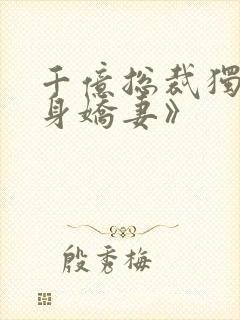 千億總裁獨
身嬌妻》
殷秀梅